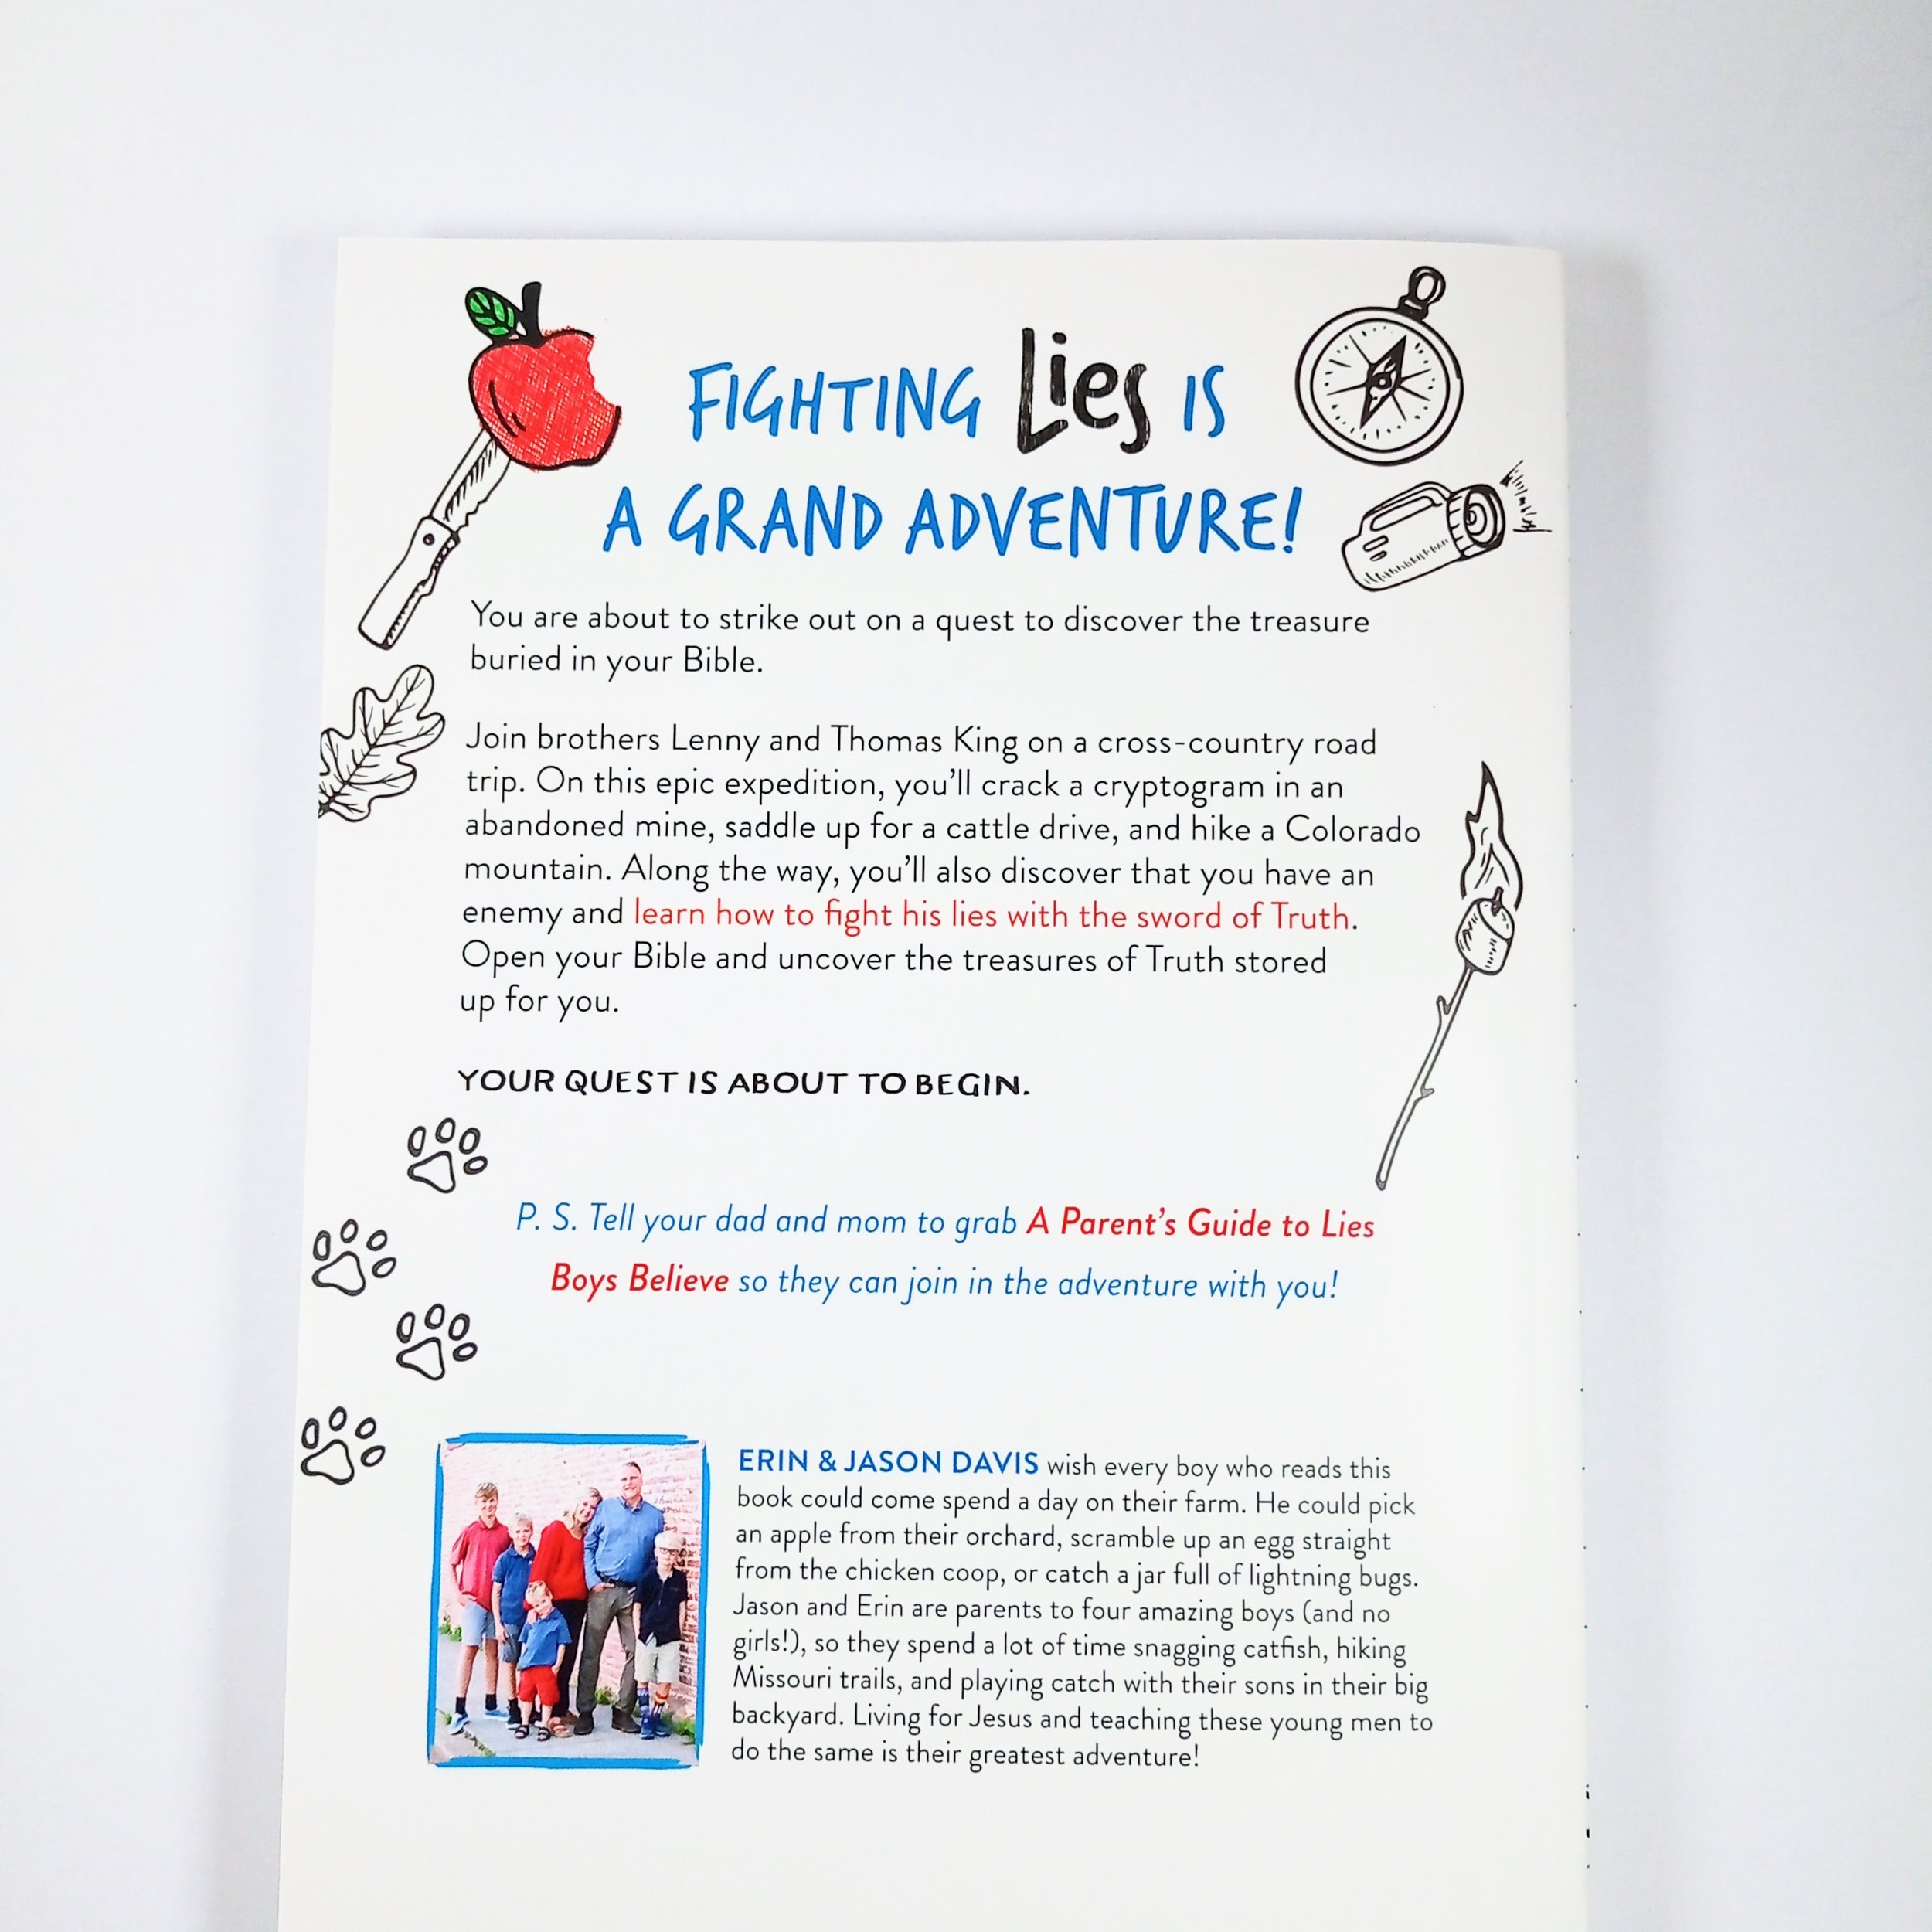 FIGHTING Lies IS
A GRAND ADVENTURE!
You are about to strike out on a quest to discover the treasure
buried in your Bible.
Join brothers Lenny and Thomas King on a cross-country road
trip. On this epic expedition, you'll crack a cryptogram in an
abandoned mine, saddle up for a cattle drive, and hike a Colorado
mountain. Along the way, you'll also discover that you have an
enemy and learn how to fight his lies with the sword of Truth.
Open your Bible and uncover the treasures of Truth stored
up for you.
YOUR QUEST IS ABOUT TO BEGIN.
P. S. Tell your dad and mom to grab A Parent's Guide to Lies
Boys Believe so they can join in the adventure with you!
ERIN & JASON DAVIS wish every boy who reads this
book could come spend a day on their farm. He could pick
an apple from their orchard, scramble up an egg straight
from the chicken coop, or catch a jar full of lightning bugs.
Jason and Erin are parents to four amazing boys (and no
girls!), so they spend a lot of time snagging catfish, hiking
Missouri trails, and playing catch with their sons in their big
backyard. Living for Jesus and teaching these young men to
do the same is their greatest adventure!